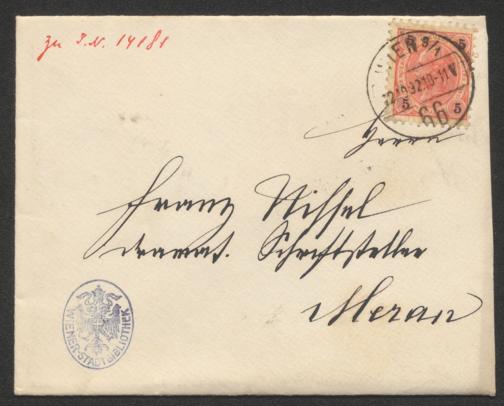 zu I.N. 14181
WIEN 9/1
10-11 V
66
5 5
5 5
Herrn
Franz Nissel
dramat. Schriftsteller
Meran
WIENER-STADTBIBLIOTHEK